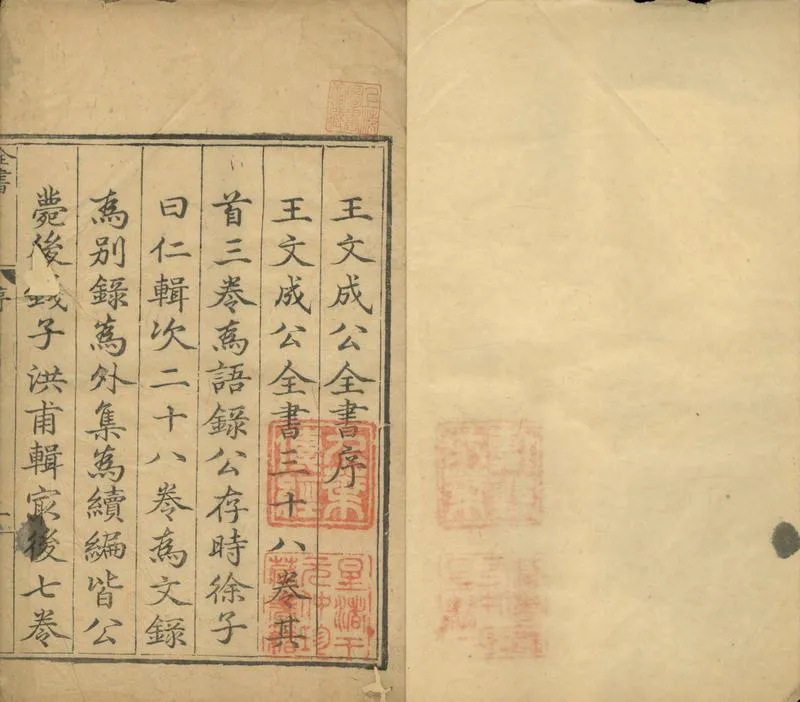 王文成公全書序
王文成公全書三十八卷其
首三卷為語錄公存時徐子
曰仁輯次二十八卷為文錄
為別錄為外集為續編皆公
薨後錢子洪甫輯寂後七卷
全書
序